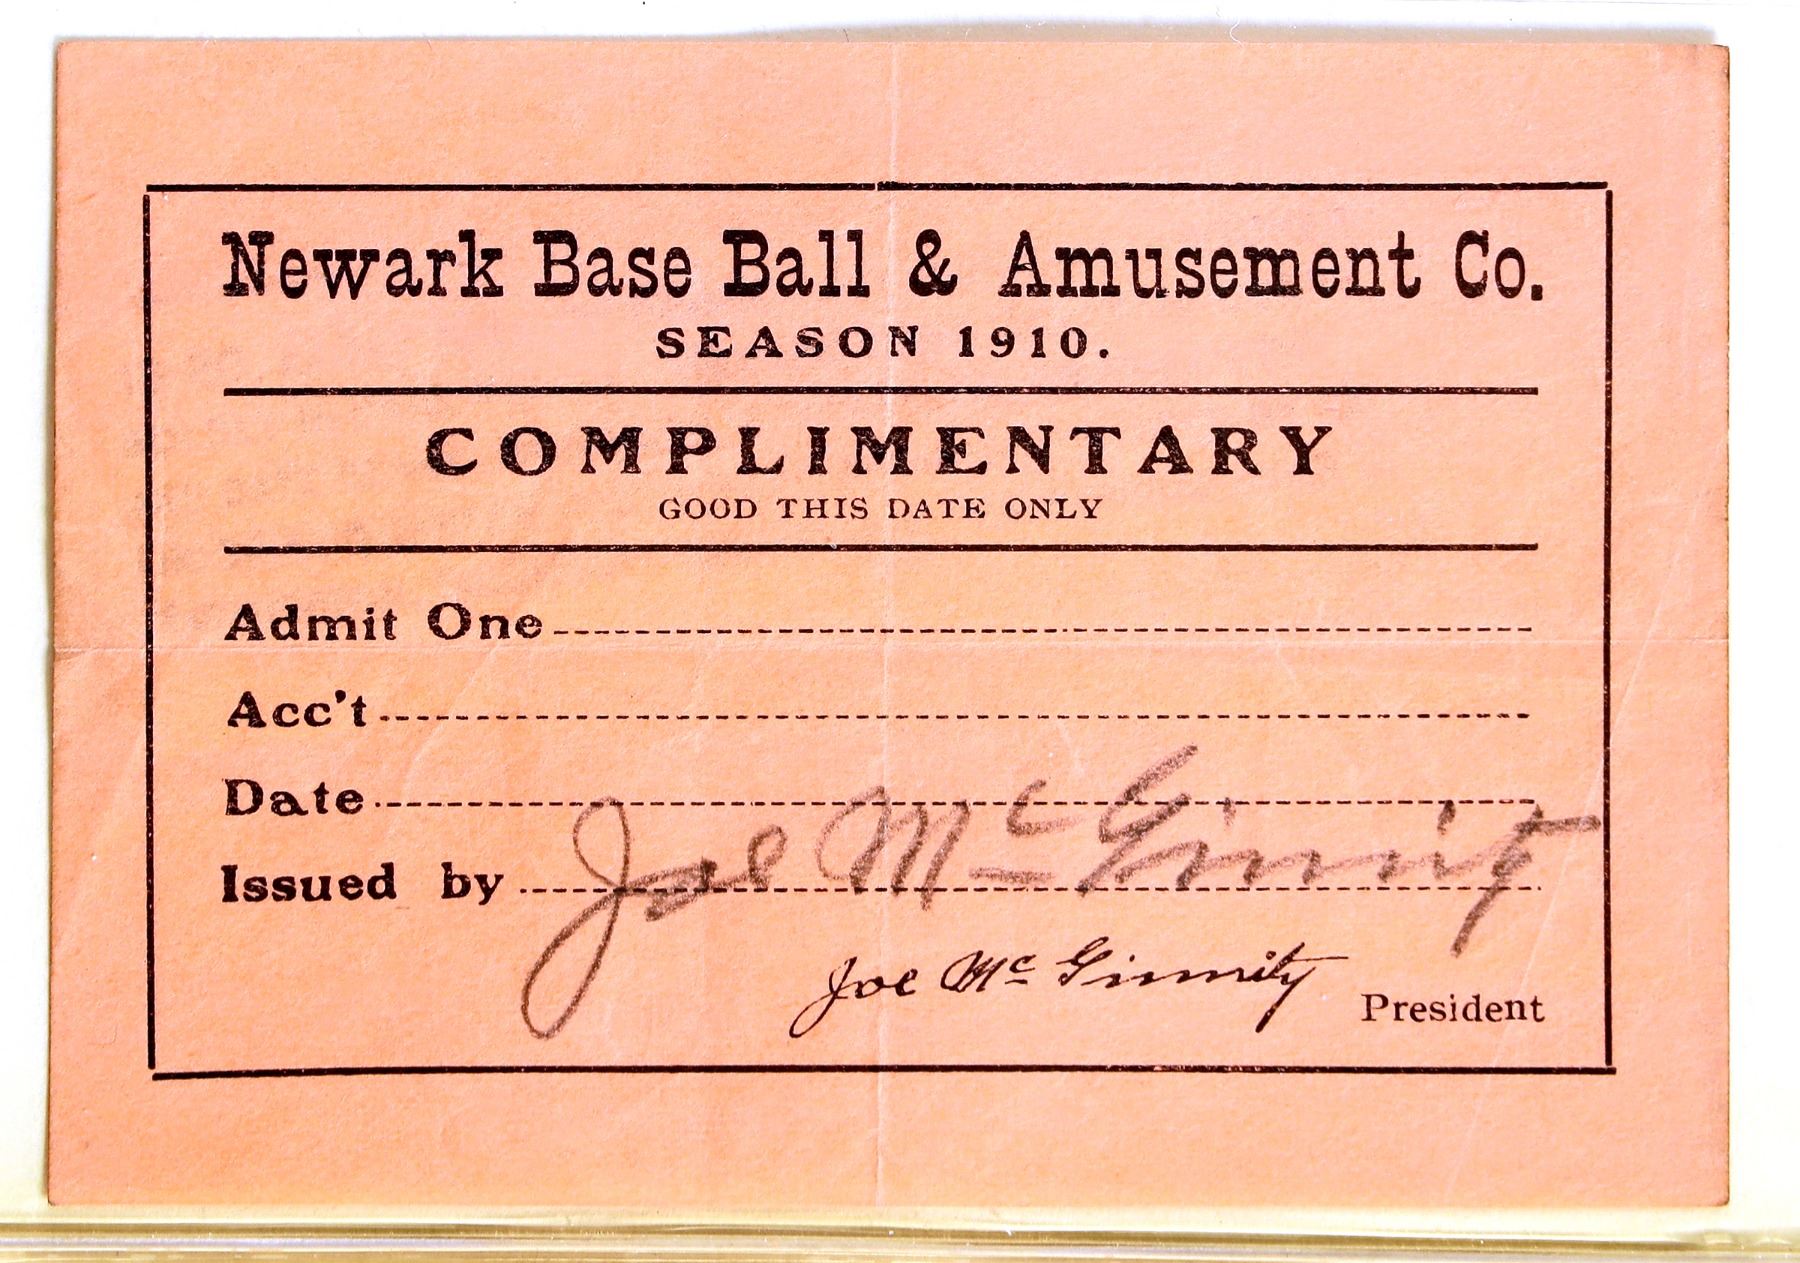 Newark Base Ball & Amusement Co.
SEASON 1910.
COMPLIMENTARY
GOOD THIS DATE ONLY
Admit One
Acc't
Date
Issued by Joe McGinnity
Joe McGinnity President